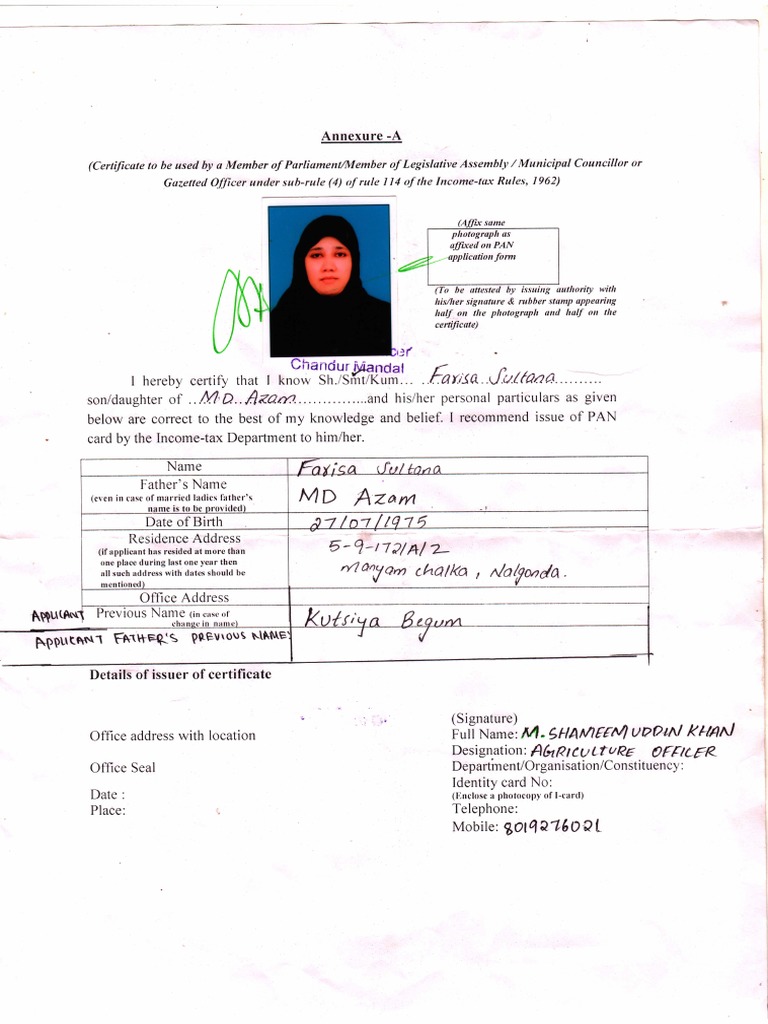 Annexure -A
(Certificate to be used by a Member of Parliament/Member of Legislative Assembly / Municipal Councillor or
Gazetted Officer under sub-rule (4) of rule 114 of the Income-tax Rules, 1962)
(Affix same
photograph as
affixed on PAN
application form
(To be attested by issuing authority with
his/her signature & rubber stamp appearing
half on the photograph and half on the
certificate)
cer
Chandur Mandal
I hereby certify that I know Sh./Smt/Kum... ..Farisa..Sultana..........
son/daughter of ..M.D..Azam...............and his/her personal particulars as given
below are correct to the best of my knowledge and belief. I recommend issue of PAN
card by the Income-tax Department to him/her.
Name Farisa Sultana
Father's Name MD Azam
(even in case of married ladies father's
name is to be provided)
Date of Birth 27/07/1975
Residence Address 5-9-172/A/2
(if applicant has resided at more than
one place during last one year then Maryam chalka, Nalgonda.
all such address with dates should be
mentioned)
Office Address
APPLICANT Previous Name (in case of Kutsiya Begum
change in name)
APPLICANT FATHER'S PREVIOUS NAME:
Details of issuer of certificate
(Signature)
Office address with location Full Name: M. SHAMEEMUDDIN KHAN
Designation: AGRICULTURE OFFICER
Office Seal Department/Organisation/Constituency:
Identity card No:
Date : (Enclose a photocopy of I-card)
Place: Telephone:
Mobile: 8019276021